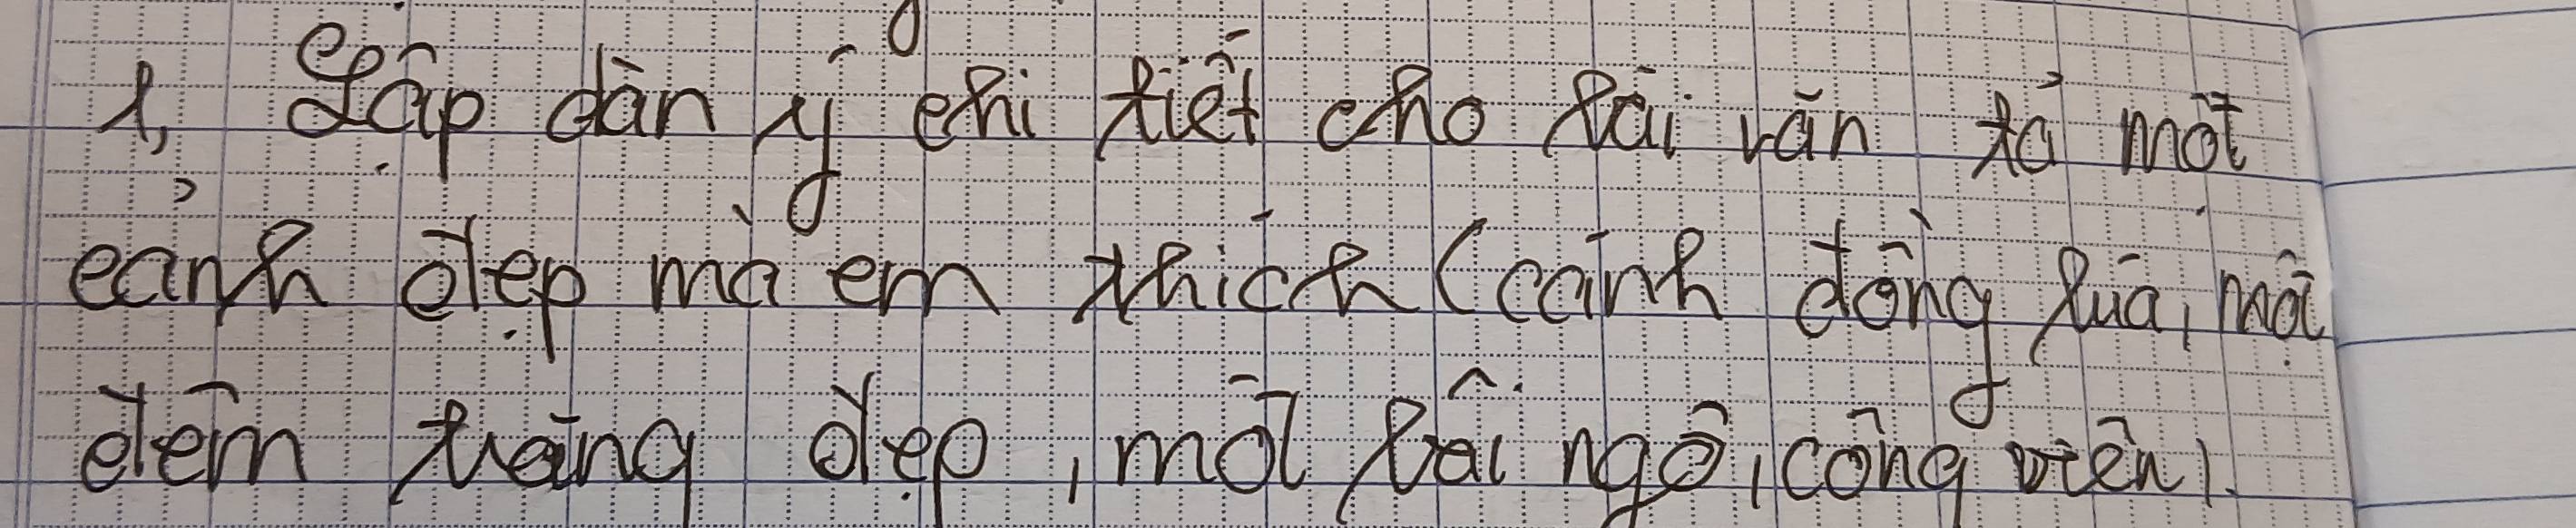 1, Lập dàn ý chi tiết cho bài văn tả một
cảnh đẹp mà em thích (cánh đồng lúa, một
đêm trăng đẹp, một bãi ngô, công viên)